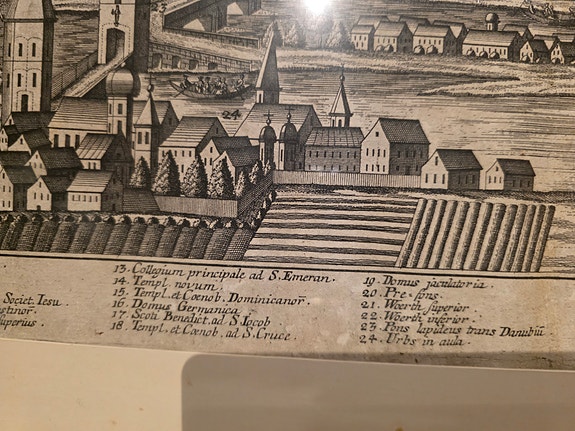 24
Societ. Iesu
stinor̄.
uperius.
13. Collegium principale ad S. Emeran.
14. Templ. novum.
15. Templ. et Cœnob. Dominicanor̄.
16. Domus Germanica.
17. Scoti Benedict. ad S. Jocob.
18 Templ. et Cœnob. ad S. Cruce.
19. Domus jaculatoria
20. Pre-bons.
21. Woerth superior.
22. Woerth inferior.
23. Pons lapideus trans Danubiū
24. Urbs in aula.